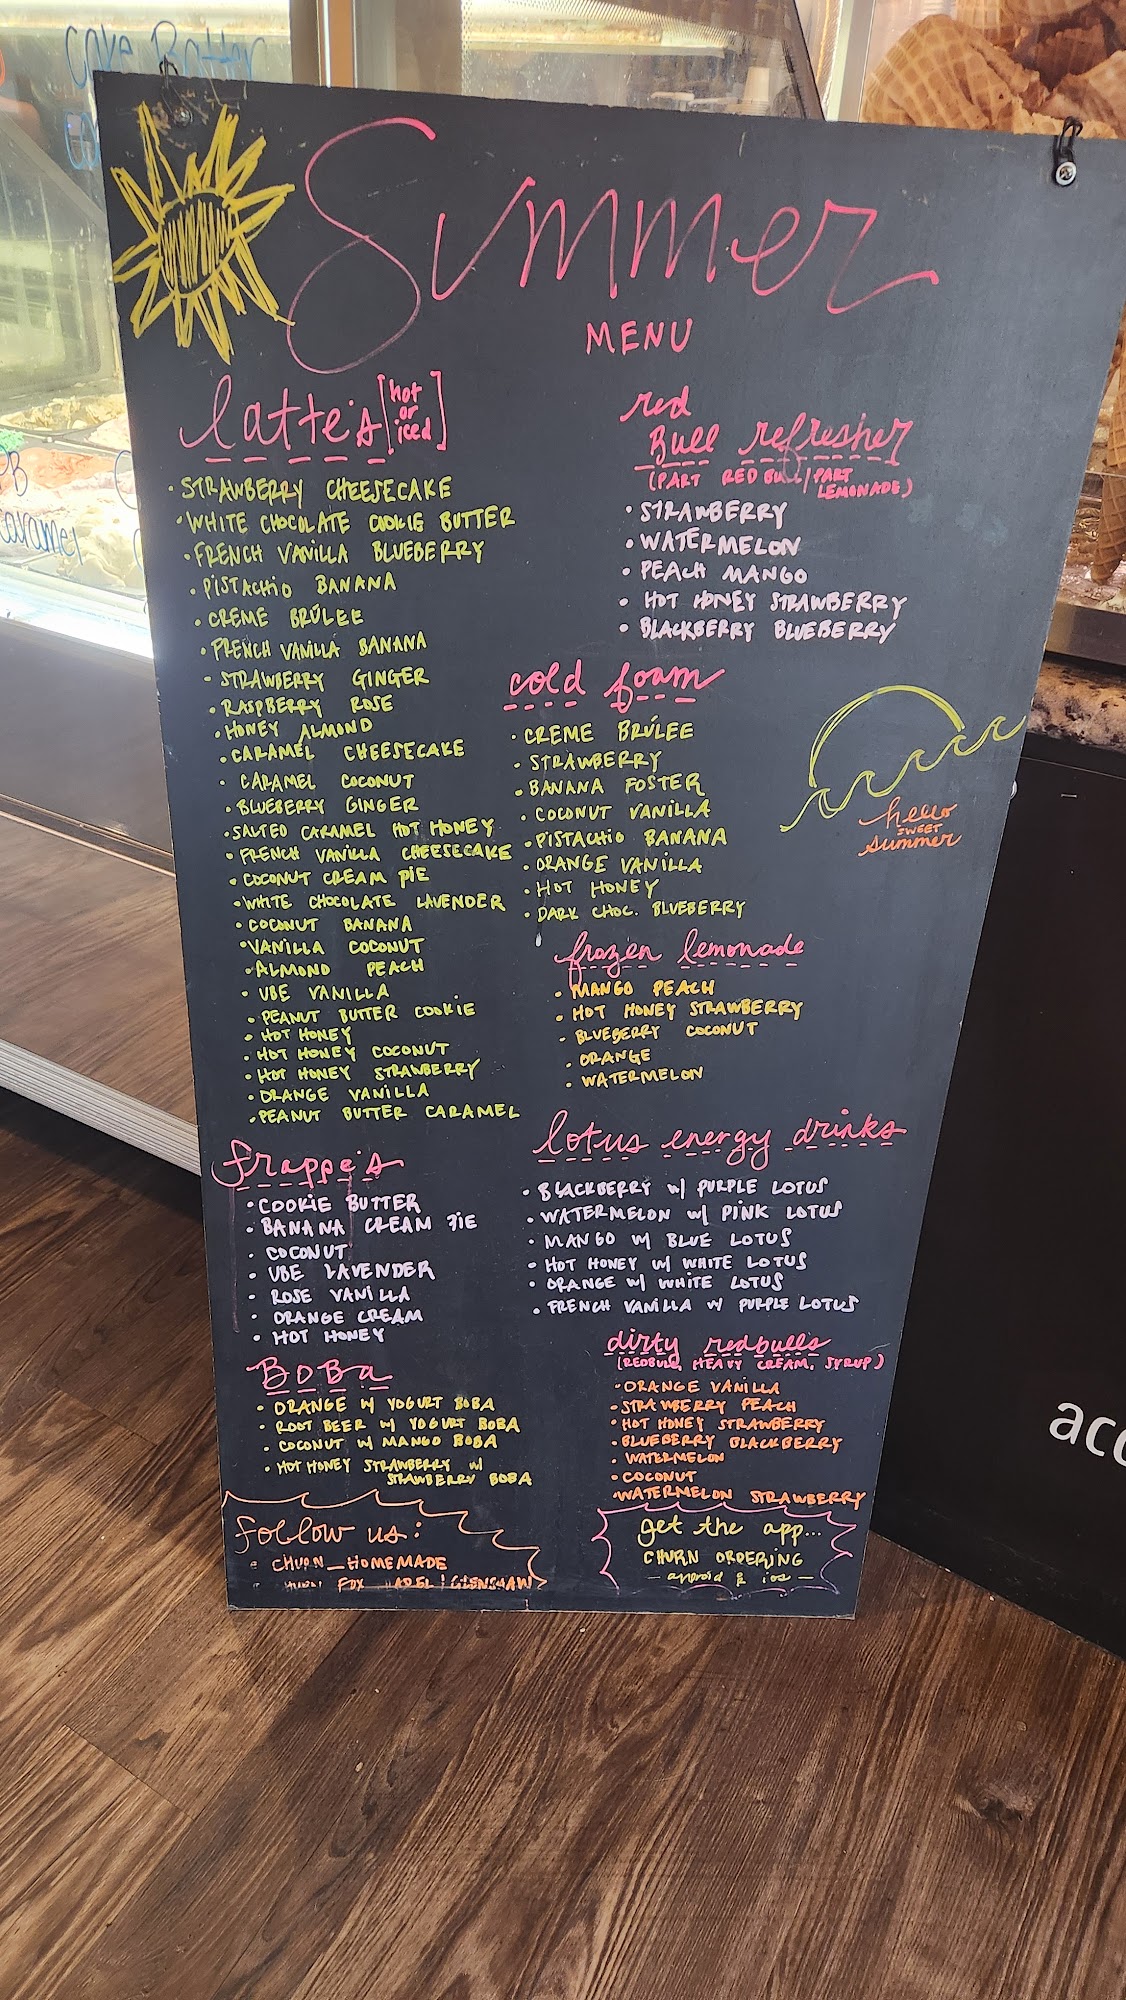 Cake Batter
Summer
MENU
latte's [hot or iced]
• STRAWBERRY CHEESECAKE
• WHITE CHOCOLATE COOKIE BUTTER
• FRENCH VANILLA BLUEBERRY
• PISTACHIO BANANA
• CREME BRÚLEE
• FRENCH VANILLA BANANA
• STRAWBERRY GINGER
• RASPBERRY ROSE
• HONEY ALMOND
• CARAMEL CHEESECAKE
• CARAMEL COCONUT
• BLUEBERRY GINGER
• SALTED CARAMEL HOT HONEY
• FRENCH VANILLA CHEESECAKE
• COCONUT CREAM PIE
• WHITE CHOCOLATE LAVENDER
• COCONUT BANANA
• VANILLA COCONUT
• ALMOND PEACH
• UBE VANILLA
• PEANUT BUTTER COOKIE
• HOT HONEY
• HOT HONEY COCONUT
• HOT HONEY STRAWBERRY
• ORANGE VANILLA
• PEANUT BUTTER CARAMEL
frappe's
• COOKIE BUTTER
• BANANA CREAM PIE
• COCONUT
• UBE LAVENDER
• ROSE VANILLA
• ORANGE CREAM
• HOT HONEY
BOBa
• ORANGE W/ YOGURT BOBA
• ROOT BEER W/ YOGURT BOBA
• COCONUT W/ MANGO BOBA
• HOT HONEY STRAWBERRY W/
STRAWBERRY BOBA
follow us:
• CHURN_HOMEMADE
FOX
red
Bull refresher
(PART RED BULL/PART
LEMONADE)
• STRAWBERRY
• WATERMELON
• PEACH MANGO
• HOT HONEY STRAWBERRY
• BLACKBERRY BLUEBERRY
cold foam
• CREME BRÚLEE
• STRAWBERRY
• BANANA FOSTER
• COCONUT VANILLA
• PISTACHIO BANANA
• ORANGE VANILLA
• HOT HONEY
• DARK CHOC. BLUEBERRY
hello
SWEET
summer
frozen lemonade
• MANGO PEACH
• HOT HONEY STRAWBERRY
• BLUEBERRY COCONUT
• ORANGE
• WATERMELON
lotus energy drinks
• BLACKBERRY W/ PURPLE LOTUS
• WATERMELON W/ PINK LOTUS
• MANGO W/ BLUE LOTUS
• HOT HONEY W/ WHITE LOTUS
• ORANGE W/ WHITE LOTUS
• FRENCH VANILLA W/ PURPLE LOTUS
dirty redbulls
(REDBULL, HEAVY CREAM, SYRUP)
• ORANGE VANILLA
• STRAWBERRY PEACH
• HOT HONEY STRAWBERRY
• BLUEBERRY BLACKBERRY
• WATERMELON
• COCONUT
• WATERMELON STRAWBERRY
get the app...
CHURN ORDERING
— android & ios —